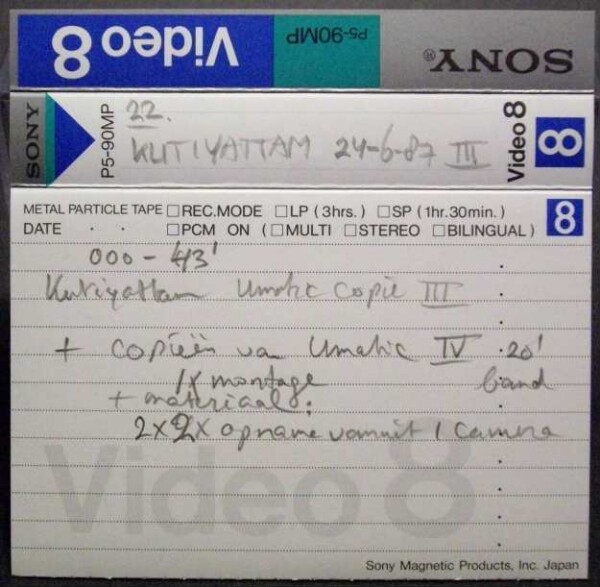 Video 8 P5-90MP SONY®
22.
SONY P5-90MP KUTIYATTAM 24-6-87 III Video 8 8
METAL PARTICLE TAPE □REC.MODE □LP (3hrs.) □SP (1hr.30min.) 8
DATE . . □PCM ON (□MULTI □STEREO □BILINGUAL)
000 - 43'
Kutiyattam Umatic copie III
+ copieën van Umatic IV 20'
1x montage band
+ materiaal:
2x2x opname vanuit 1 camera
Video 8
Sony Magnetic Products, Inc. Japan